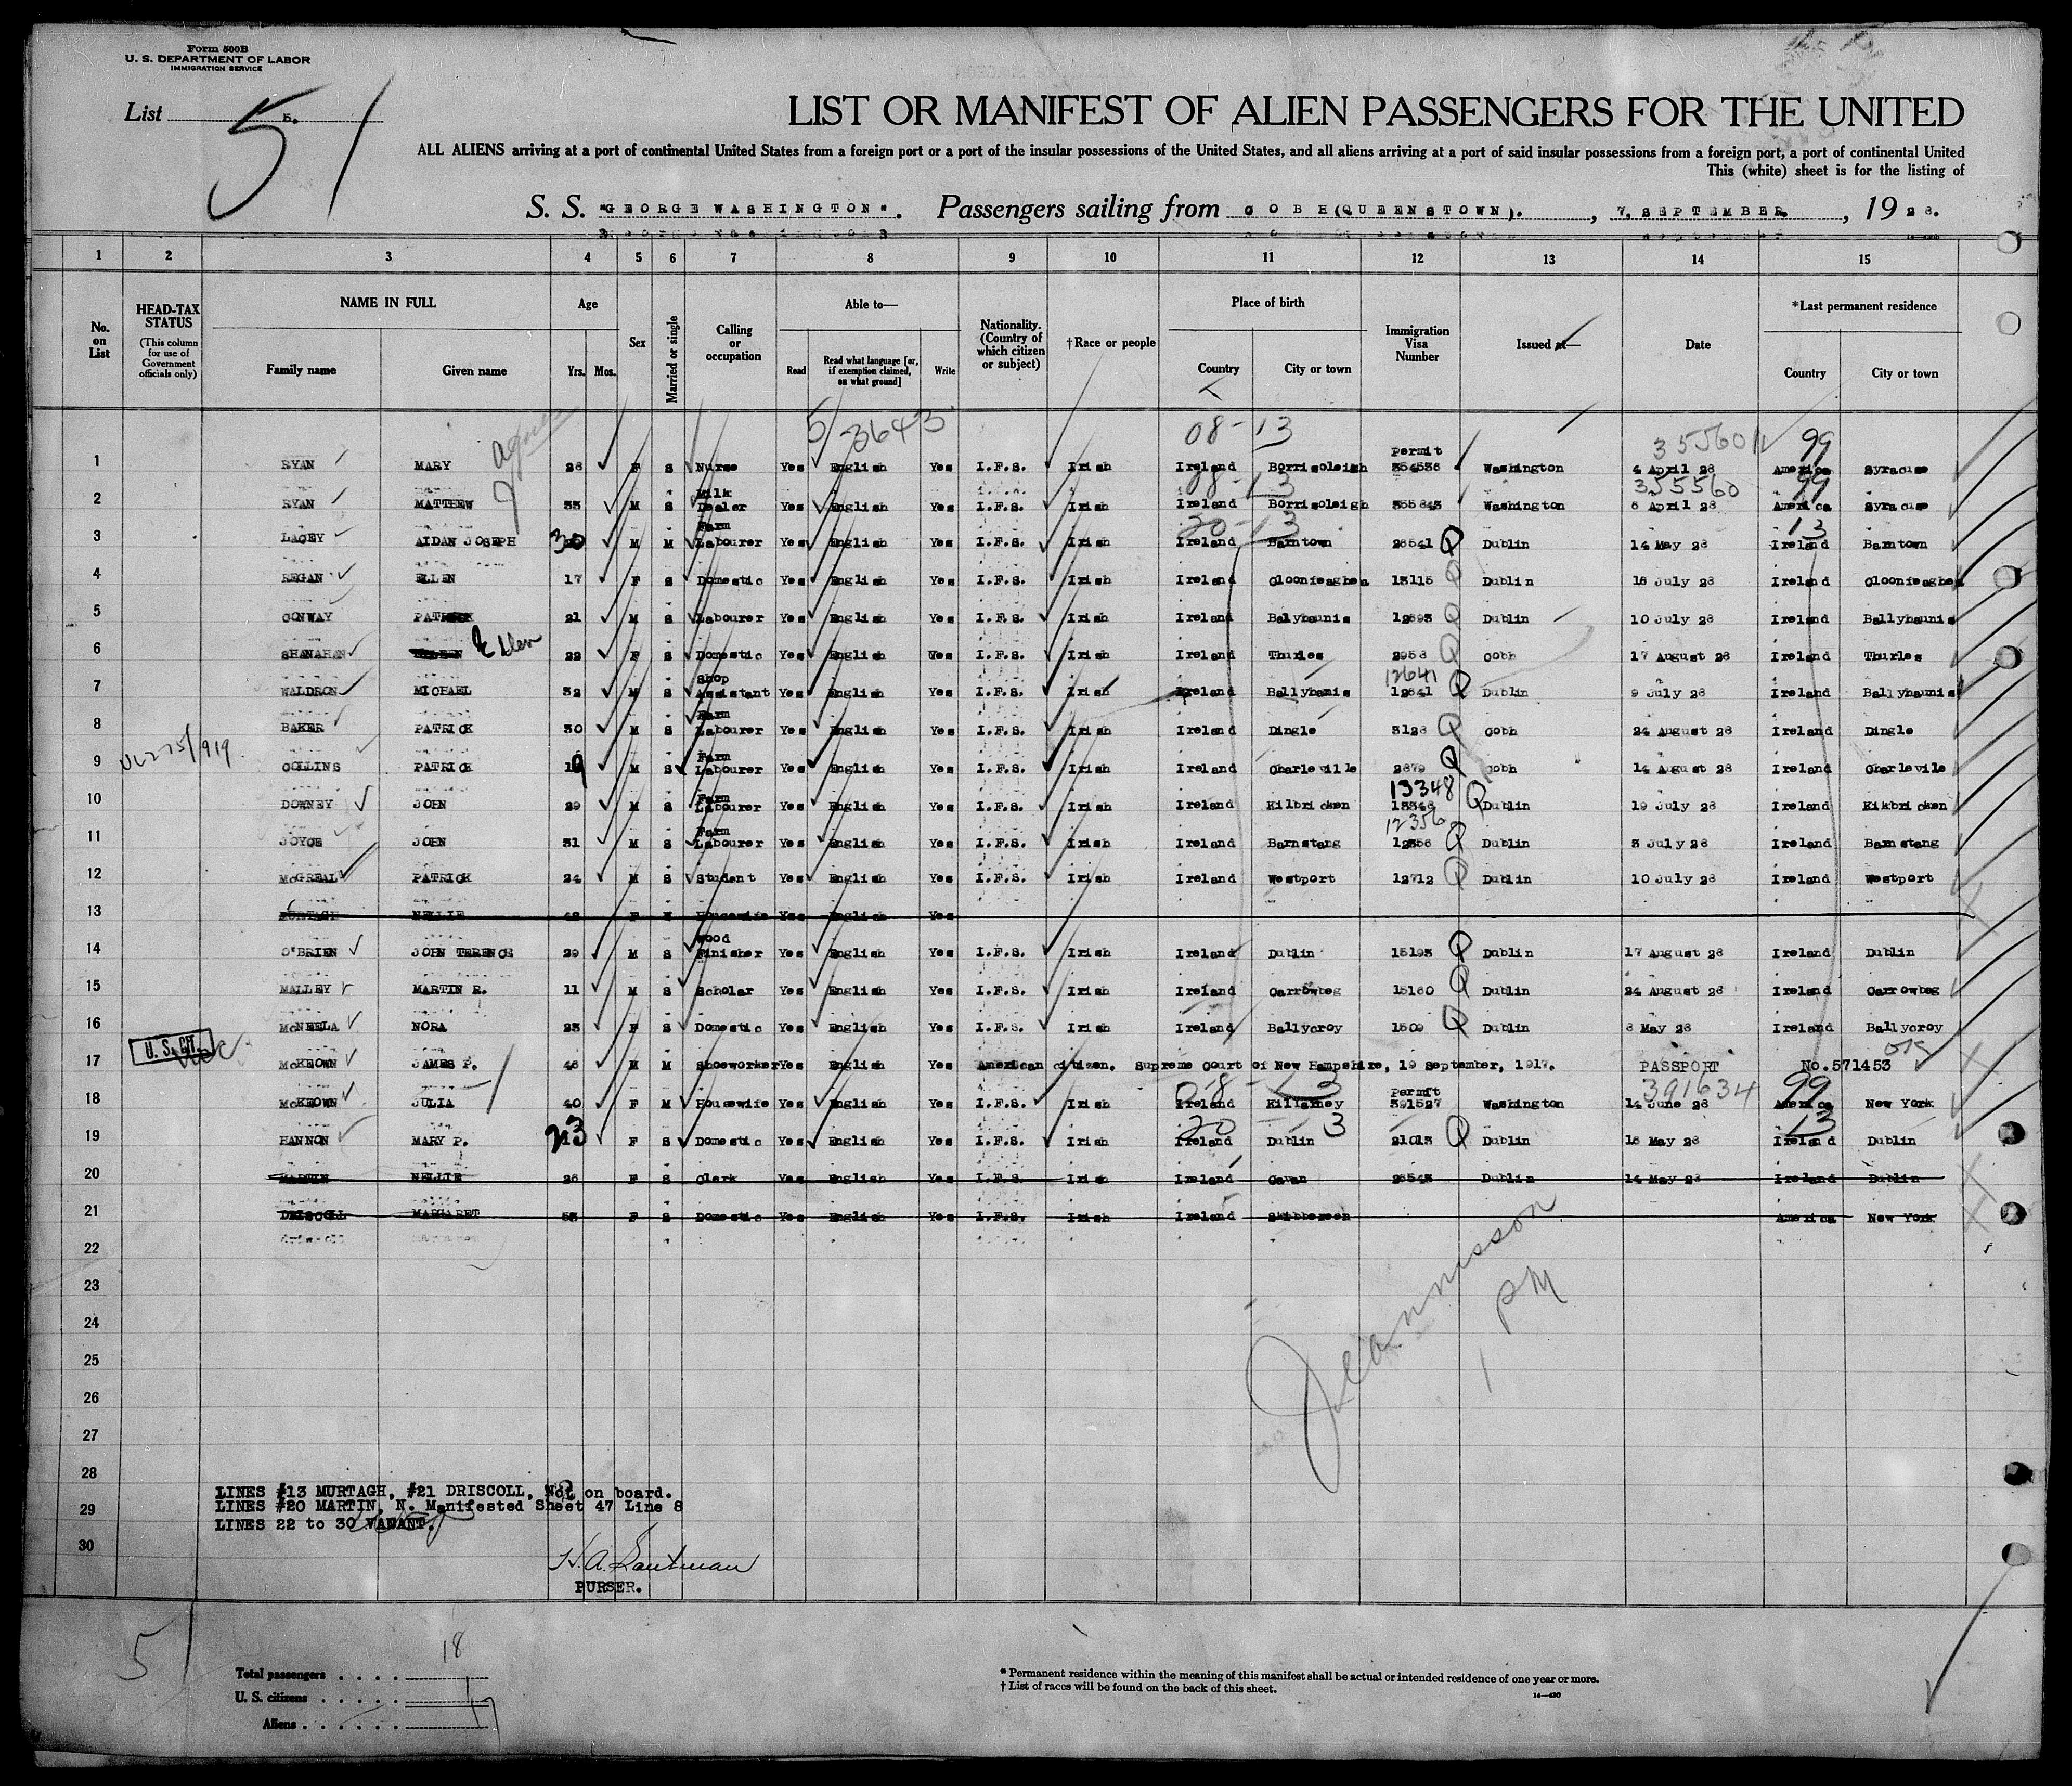 Form 500B
U. S. DEPARTMENT OF LABOR
IMMIGRATION SERVICE
List 5.
51
LIST OR MANIFEST OF ALIEN PASSENGERS FOR THE UNITED
ALL ALIENS arriving at a port of continental United States from a foreign port or a port of the insular possessions of the United States, and all aliens arriving at a port of said insular possessions from a foreign port, a port of continental United
This (white) sheet is for the listing of
S. S. "GEORGE WASHINGTON". Passengers sailing from COBH (QUEENSTOWN). , 7, SEPTEMBER , 1928.
1 2 3 4 5 6 7 8 9 10 11 12 13 14 15
No. on List
HEAD-TAX STATUS (This column for use of Government officials only)
NAME IN FULL
Family name Given name
Age
Yrs. Mos.
Sex
Married or single
Calling or occupation
Able to—
Read Read what language [or, if exemption claimed, on what ground] Write
Nationality. (Country of which citizen or subject)
†Race or people
Place of birth
Country City or town
Immigration Visa Number
Issued at—
Date
*Last permanent residence
Country City or town
5/3643 08-13 99
1 RYAN MARY 28 F S Nurse Yes English Yes I.F.S. Irish Ireland Borrisoleigh Permit 354536 Washington 4 April 28 America Syracuse
355560 99
2 RYAN MATTHEW 33 M S Milk Dealer Yes English Yes I.F.S. Irish Ireland Borrisoleigh 355843 Washington April 28 America Syracuse
20-13 13
3 LACEY AIDAN JOSEPH 30 M M Farm Labourer Yes English Yes I.F.S. Irish Ireland Barntown 28541 Q Dublin 14 May 28 Ireland Barntown
4 REGAN ELLEN 17 F S Domestic Yes English Yes I.F.S. Irish Ireland Cloonfeaghea 13115 Q Dublin 18 July 28 Ireland Cloonfeaghea
5 CONWAY PATRICK 21 M S Labourer Yes English Yes I.F.S. Irish Ireland Balyhaunis 12693 Q Dublin 10 July 28 Ireland Ballyhaunis
6 SHANAHAN Ellen 22 F S Domestic Yes English Yes I.F.S. Irish Ireland Thurles 2958 Q Cobh 17 August 28 Ireland Thurles
12641
7 WALDRON MICHAEL 32 M S Shop Assistant Yes English Yes I.F.S. Irish Ireland Ballyhanis 12641 Q Dublin 9 July 28 Ireland Ballyhaunis
8 BAKER PATRICK 30 M S Farm Labourer Yes English Yes I.F.S. Irish Ireland Dingle 3128 Q Cobh 24 August 28 Ireland Dingle
9 COLLINS PATRICK 19 M S Farm Labourer Yes English Yes I.F.S. Irish Ireland Charleville 2879 Q Cobh 14 August 28 Ireland Charlevile
13348
10 DOWNEY JOHN 29 M S Farm Labourer Yes English Yes I.F.S. Irish Ireland Kilbricken 13348 Q Dublin 19 July 28 Ireland Kikbricken
12356
11 JOYCE JOHN 31 M S Farm Labourer Yes English Yes I.F.S. Irish Ireland Barnstang 12356 Q Dublin 3 July 28 Ireland Barnstang
12 McGREAL PATRICK 24 M S Student Yes English Yes I.F.S. Irish Ireland Westport 12712 Q Dublin 10 July 28 Ireland Westport
13 MURTAGH NELLIE 48 F Housewife Yes English Yes
14 O'BRIEN JOHN TERENCE 29 M S Wood Finisher Yes English Yes I.F.S. Irish Ireland Dublin 15193 Q Dublin 17 August 28 Ireland Dublin
15 MALLEY MARTIN R. 11 M S Scholar Yes English Yes I.F.S. Irish Ireland Carrowbeg 15160 Q Dublin 24 August 28 Ireland Carrowbeg
16 McNEELA NORA 23 F S Domestic Yes English Yes I.F.S. Irish Ireland Ballycroy 1509 Q Dublin 8 May 28 Ireland Ballycroy
U. S. CIT.
17 McKEOWN JAMES P. 46 M M Shoeworker Yes English Yes American citizen. Supreme Court of New Hampshire, 19 September, 1917. PASSPORT No.571453
08-13 391634 99
18 McKEOWN JULIA 40 F M Housewife Yes English Yes I.F.S. Irish Ireland Killarney Permit 391527 Washington 14 June 28 America New York
20 3 13
19 HANNON MARY P. 23 F S Domestic Yes English Yes I.F.S. Irish Ireland Dublin 21013 Q Dublin 18 May 28 Ireland Dublin
20 MARTIN NELLIE 28 F S Clerk Yes English Yes I.F.S. Irish Ireland Cavan 28543 Dublin 14 May 28 Ireland Dublin
21 DRISCOLL MARGARET 53 F S Domestic Yes English Yes I.F.S. Irish Ireland Skibbereen America New York
22
23
24
25
26
27
28
29
30
Jeannisson
1 PM
LINES #13 MURTAGH, #21 DRISCOLL, Not on board.
LINES #20 MARTIN, N. Manifested Sheet 47 Line 8
LINES 22 to 30 VACANT.
PURSER.
51
Total passengers 18
U. S. citizens 1
Aliens 17
* Permanent residence within the meaning of this manifest shall be actual or intended residence of one year or more.
† List of races will be found on the back of this sheet.
14—430